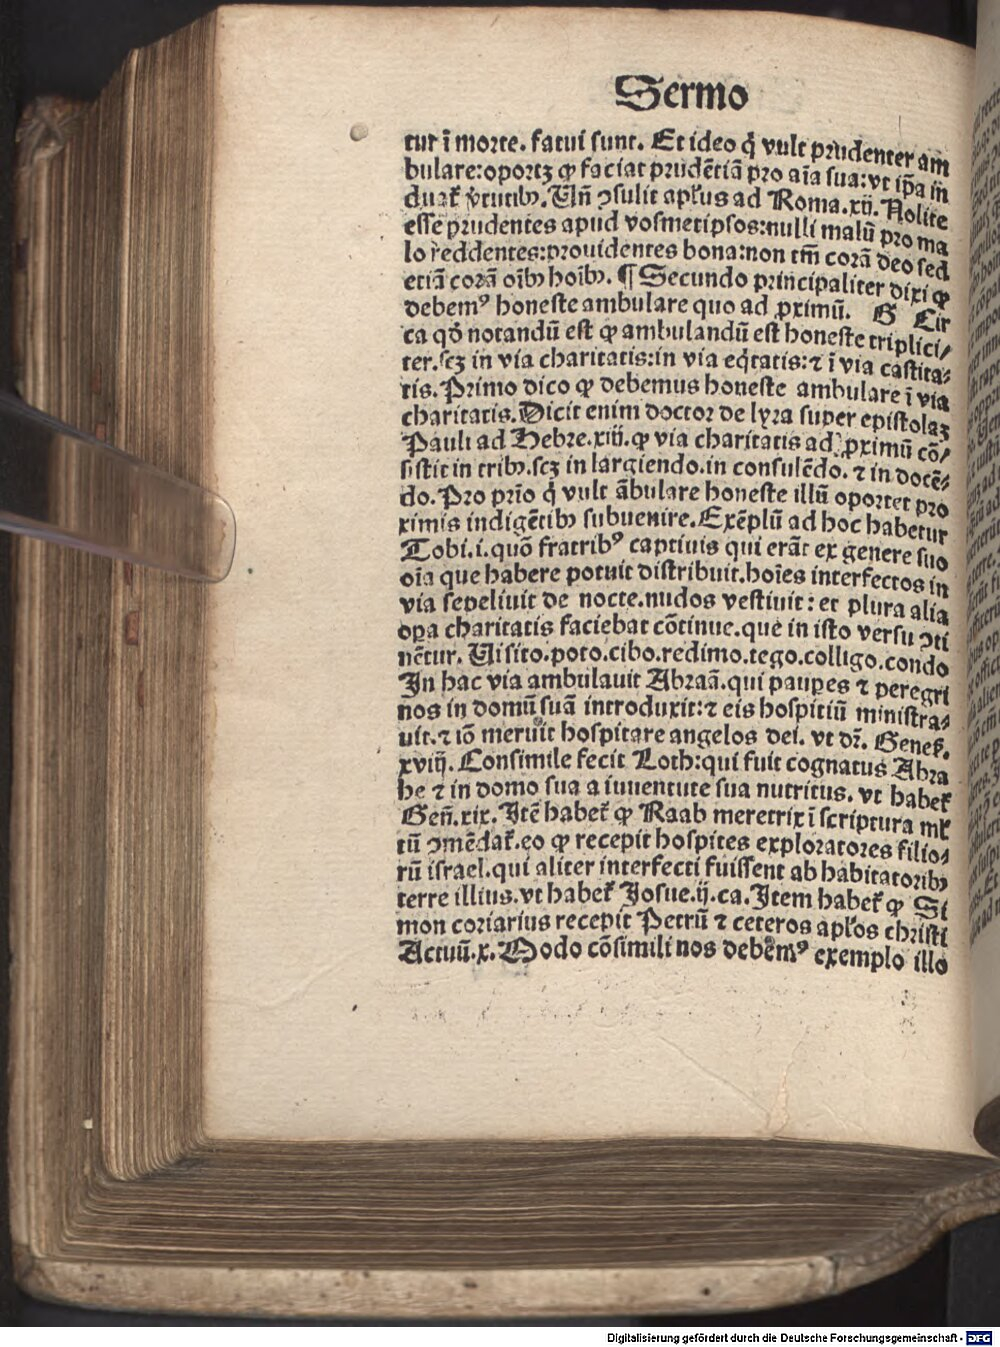 Sermo
tur ī morte. fatui sunt. Et ideo q̇ vult prudenter am
bulare:oportꝫ ꝙ faciat prudētiā pro aīa sua:vt ip̄a in̄
durat̉ v̓tutibꝰ. Un̄ ꝯsulit apl̓us ad Roma.xij. Nolite
esse prudentes apud vosmetipsos:nulli malū pro ma
lo reddentes:prouidentes bona:non tm̄ corā deo sed
etiā corā oībꝰ hoībꝰ. ¶ Secundo principaliter dixi ꝙ
debemꝰ honeste ambulare quo ad ꝓximū. G Cir
ca qd̓ notandū est ꝙ ambulandū est honeste triplici/
ter.scꝫ in via charitatis:in via eq̇tatis:⁊ ī via castita⸗
tis. Primo dico ꝙ debemus honeste ambulare ī via
charitatis. Dicit enim doctor de lyra super epistolaꝫ
Pauli ad Hebre.xiij.ꝙ via charitatis ad ꝓximū cō/
sistit in tribꝰ.scꝫ in largiendo.in consulēdo. ⁊ in docē⸗
do. Pro pr̄io q̇ vult ābulare honeste illū oportet pro
ximis indigētibꝰ subuenire. Exēplū ad hoc habetur
Tobi.i.quō fratribꝰ captiuis qui erāt ex genere suo
oīa que habere potuit distribuit.hoīes interfectos in
via sepeliuit de nocte.nudos vestiuit: et plura alia
oꝑa charitatis faciebat cōtinue.que in isto versu ꝯti
nētur. Uisito.poto.cibo.redimo.tego.colligo.condo
In hac via ambulauit Abraā.qui pauꝑes ⁊ peregri
nos in domū suā introduxit:⁊ eis hospitiū ministra⸗
uit.⁊ iō meruit hospitare angelos dei. vt dr̄. Genes̉.
xviij. Consimile fecit Loth:qui fuit cognatus Abra
he ⁊ in domo sua a iuuentute sua nutritus. vt habet̉
Gen̄.xix. Itē habet̉ ꝙ Raab meretrix ī scriptura ml̓
tū ꝯmēdat̉.eo ꝙ recepit hospites exploratores filio⸗
rū israel.qui aliter interfecti fuissent ab habitatoribꝰ
terre illius.vt habet̉ Josue.ij.ca. Item habet̉ ꝙ Si
mon coriarius recepit Petrū ⁊ ceteros apl̓os christi
Actuū.x. Modo cōsimili nos debemꝰ exemplo illo
Digitalisierung gefördert durch die Deutsche Forschungsgemeinschaft - DFG